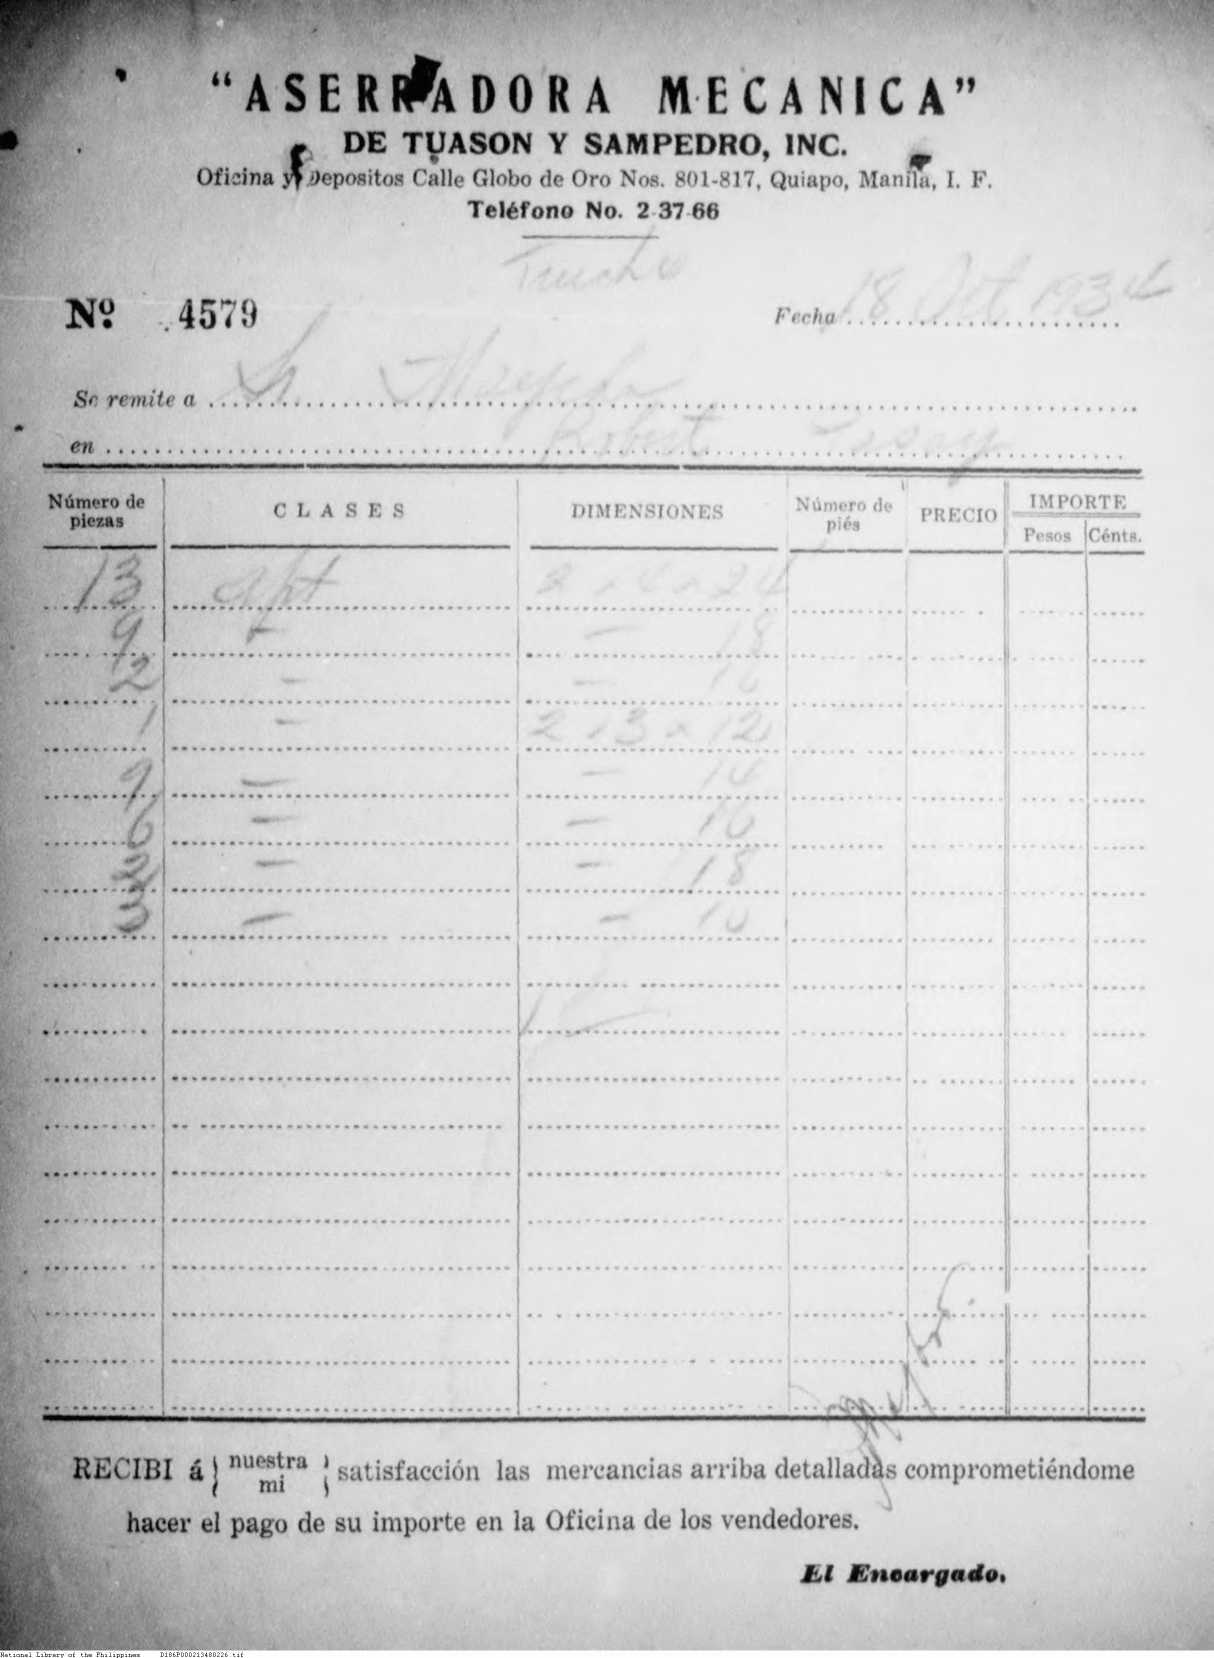 "ASERRADORA MECANICA"
DE TUASON Y SAMPEDRO, INC.
Oficina y Depositos Calle Globo de Oro Nos. 801-817, Quiapo, Manila, I. F.
Teléfono No. 2-37-66
Nº. 4579
Fecha 18 Oct 1934
Se remite a Sr
en Robert
Número de piezas CLASES DIMENSIONES Número de piés PRECIO IMPORTE Pesos Cénts.
13 apt 2 x 4 x 24
9 — — 18
2 — — 16
1 — 2 x 3 x 12
9 — — 14
6 — — 16
— — 18
3 — — 16
RECIBI á { nuestra mi } satisfacción las mercancias arriba detalladas comprometiéndome
hacer el pago de su importe en la Oficina de los vendedores.
El Encargado.
National Library of the Philippines D186P000213480226.tif